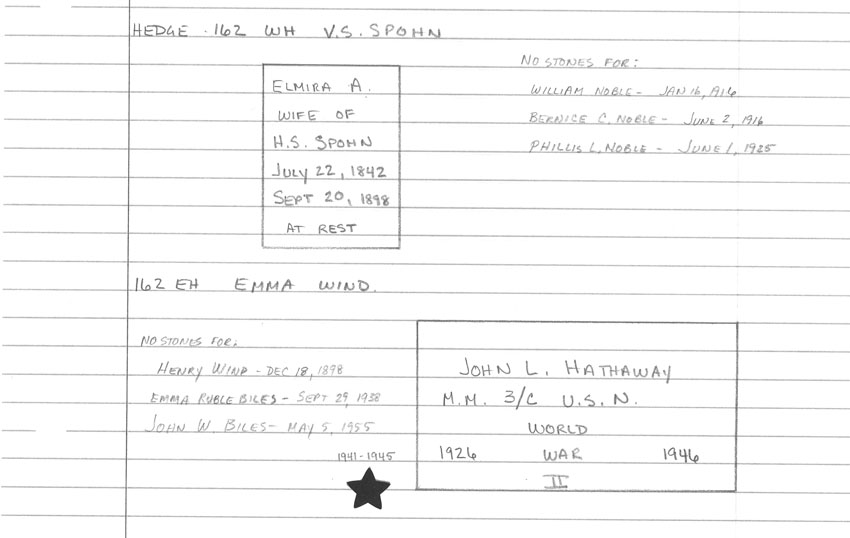 HEDGE . 162 WH V.S. SPOHN
ELMIRA A.
WIFE OF
H.S. SPOHN
JULY 22, 1842
SEPT 20, 1898
AT REST
NO STONES FOR:
WILLIAM NOBLE - JAN 16, 1916
BERNICE C. NOBLE - JUNE 2, 1916
PHILLIS L. NOBLE - JUNE 1, 1925
162 EH EMMA WIND.
NO STONES FOR:
HENRY WIND - DEC 18, 1898
EMMA RUBLE BILES - SEPT 29, 1938
JOHN W. BILES - MAY 5, 1955
1941-1945
JOHN L. HATHAWAY
M.M. 3/C U.S.N.
WORLD
1926 WAR 1946
II